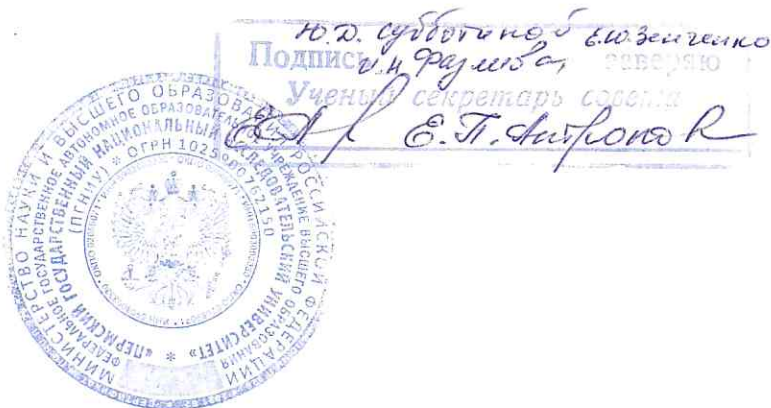 Ю.Д. Субботиной Е.Ю. Зенченко
Подпись И.Н. заверяю
Ученый секретарь совета
Е.П. Антропов
МИНИСТЕРСТВО НАУКИ И ВЫСШЕГО ОБРАЗОВАНИЯ РОССИЙСКОЙ ФЕДЕРАЦИИ
ФЕДЕРАЛЬНОЕ ГОСУДАРСТВЕННОЕ АВТОНОМНОЕ ОБРАЗОВАТЕЛЬНОЕ УЧРЕЖДЕНИЕ ВЫСШЕГО ОБРАЗОВАНИЯ
«ПЕРМСКИЙ ГОСУДАРСТВЕННЫЙ НАЦИОНАЛЬНЫЙ ИССЛЕДОВАТЕЛЬСКИЙ УНИВЕРСИТЕТ» *
(ПГНИУ) * ОГРН 1025900762150